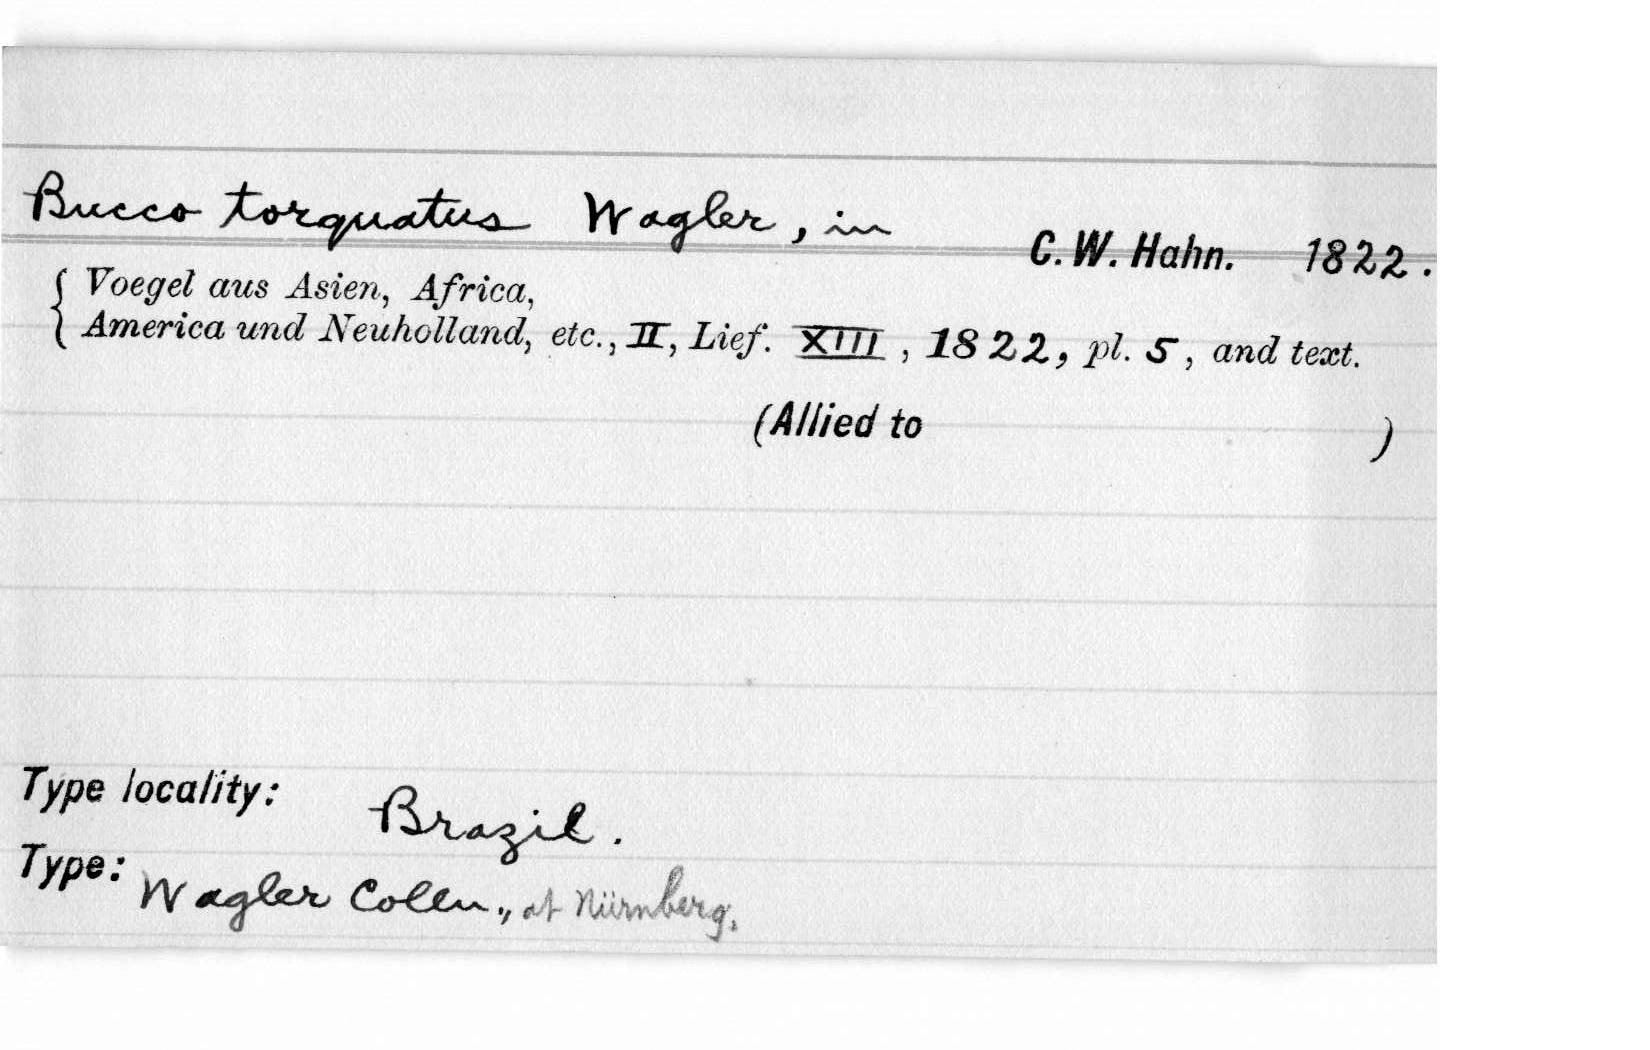 Bucco torquatus Wagler, in C. W. Hahn. 1822.
Voegel aus Asien, Africa,
America und Neuholland, etc., II, Lief. XIII, 1822, pl. 5, and text.
(Allied to )
Type locality: Brazil.
Type: Wagler Colln., at Nürnberg.